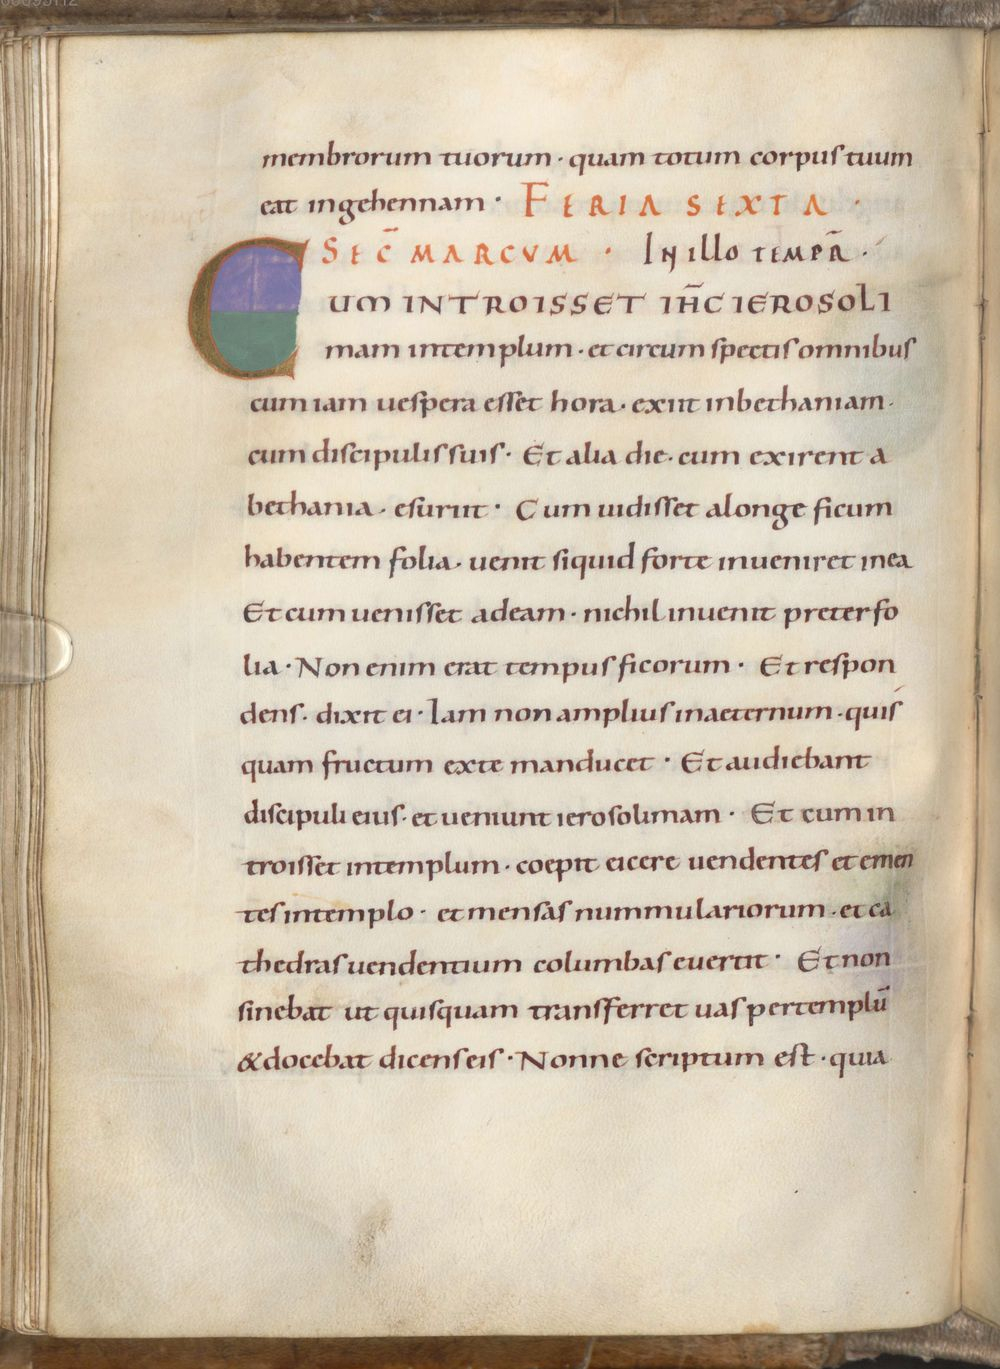 membrorum tuorum · quam totum corpus tuum
eat ingehennam · FERIA SEXTA ·
SEC̄ MARCVM · In illo TEMPR̄ ·
CUM INTROISSET IH̄C IEROSOLI
mam intemplum · et circum spectis omnibus
cum iam uespera esset hora · exiit inbethaniam ·
cum discipulis suis · Et alia die · cum exirent a
bethania · esuriit · Cum uidisset alonge ficum
habentem folia · uenit siquid forte inueniret inea
Et cum uenisset adeam · nichil inuenit preter fo
lia · Non enim erat tempus ficorum · Et respon
dens · dixit ei · Iam non amplius inaeternum · quis
quam fructum exte manducet · Et audiebant
discipuli eius · et ueniunt ierosolimam · Et cum in
troisset intemplum · coepit eicere uendentes et emen
tes intemplo · et mensas nummulariorum · et ca
thedras uendentium columbas euertit · Et non
sinebat ut quisquam transferret uas per templū
& docebat dicens eis · Nonne scriptum est · quia